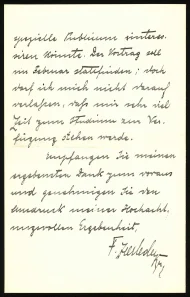 spezielle Publicum interes-
siren könnte. Der Vortrag soll
im Februar stattfinden; doch
darf ich mich nicht darauf
verlassen, daß mir sehr viel
Zeit zum Studium zur Ver-
fügung stehen werde.
Empfangen Sie meinen
ergebensten Dank zum voraus
und genehmigen Sie den
Ausdruck meiner Hochacht-
ungsvollen Ergebenheit,
F.